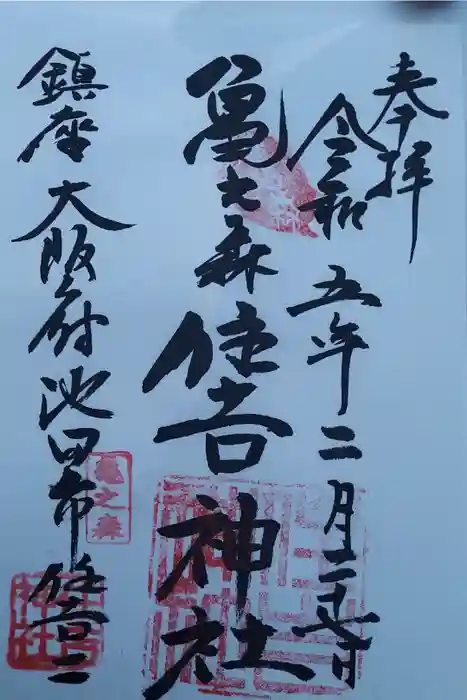 奉拝
令和五年二月二十七日
亀之森住吉神社
鎮座 大阪府池田市住吉二
亀之森